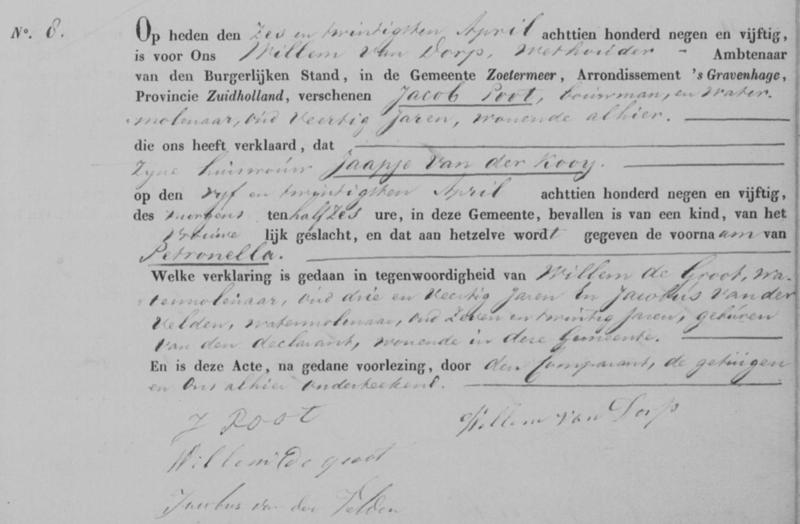 No. 8. Op heden den Zes en twintigsten April achttien honderd negen en vijftig,
is voor Ons Willem Van Dorp, Wethouder - Ambtenaar
van den Burgerlijken Stand, in de Gemeente Zoetermeer, Arrondissement 's Gravenhage,
Provincie Zuidholland, verschenen Jacob Poot, bouwman, en water-
molenaar, oud Veertig jaren, wonende alhier.
die ons heeft verklaard, dat
Zyne huisvrouw Jaapje Van der Kooy.
op den vyf en twintigsten April achttien honderd negen en vijftig,
des morgens ten half Zes ure, in deze Gemeente, bevallen is van een kind, van het
Vrouwe lijk geslacht, en dat aan hetzelve wordt gegeven de voornaam van
Petronella.
Welke verklaring is gedaan in tegenwoordigheid van Willem de Groot, Wa-
termolenaar, oud drie en Veertig Jaren En Jacobus Van der
Velden, watermolenaar, oud Zeven en twintig Jaren, geburen
Van den declarant, wonende in deze Gemeente.
En is deze Acte, na gedane voorlezing, door den Comparant, de getuigen
en Ons alhier onderteekend.
J Poot
Willem van Dorp
Willem de groot
Jacobus van der Velden